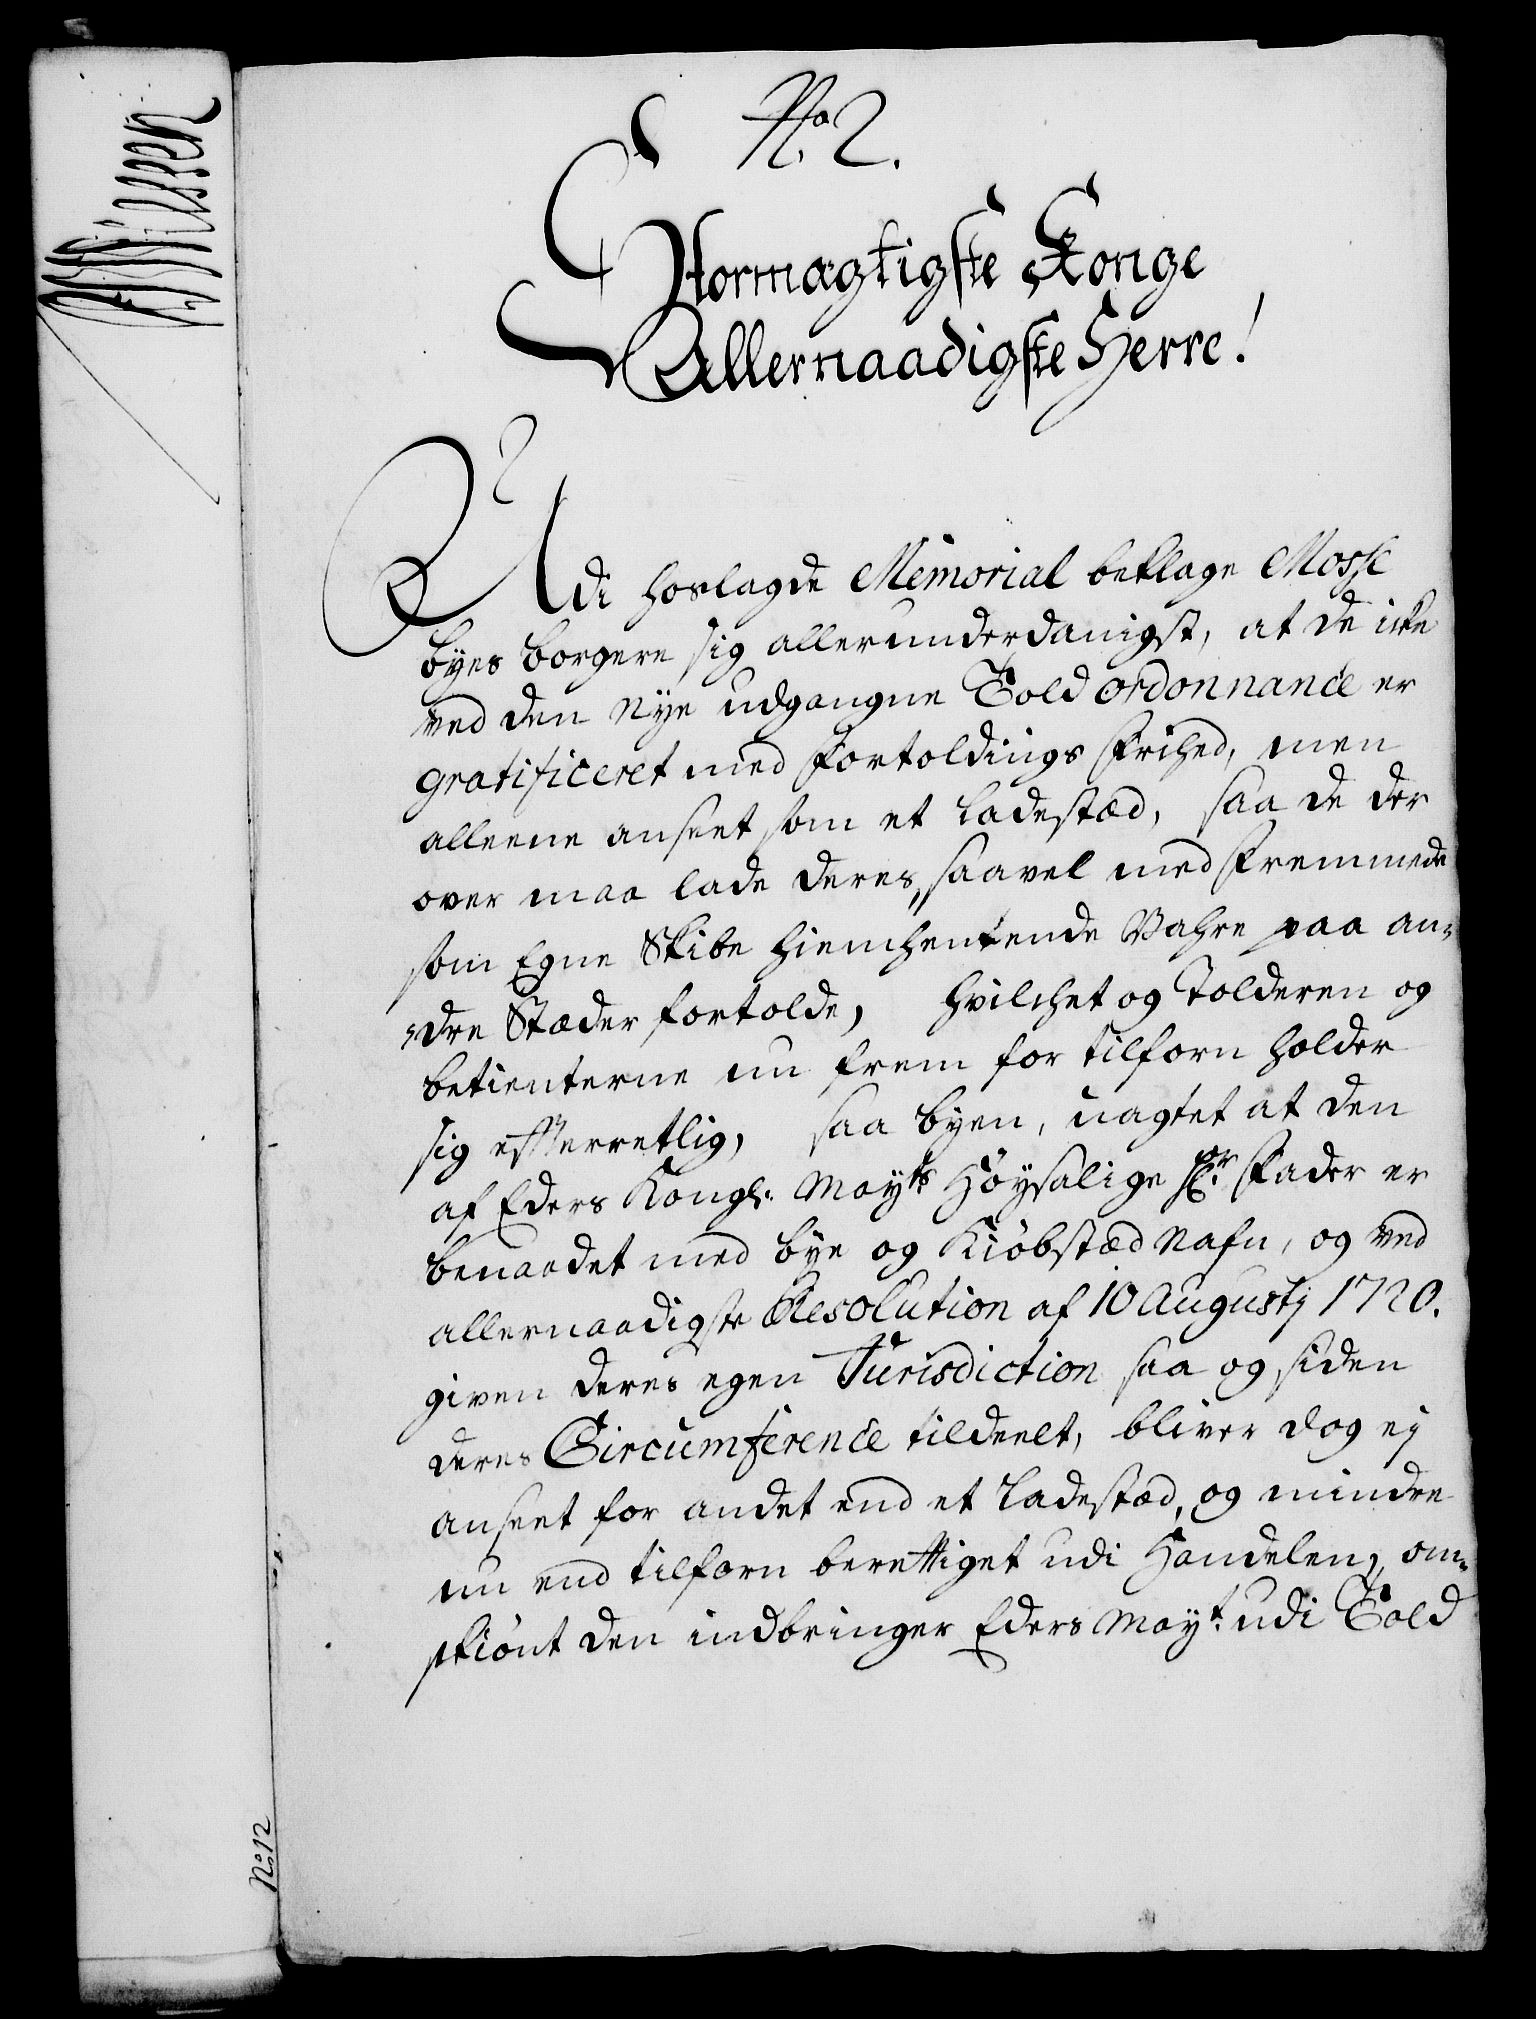 No 2.
Stormægtigste Konge
Allernaadigste Herre!
Udi hoslagde Memorial beklage Mosse
byes borgere sig allerunderdanigst, at de icke
ved den nye udgangne Told ordonnance er
gratificeret med fortoldings frihed, men
alleene anseet som et Ladestæd, saa de der
over maa lade deres, saavel med fremmede
som Egne Skibe hiemhentende Vahre paa an-
dre Stæder fortolde, hvilchet og Tolderen og
betienterne nu frem for tilforn holder
sig efterretlig, saa byen, uagtet at den
af Eders Kongl: Mayts Höysalige Hr Fader er
benaadet med bye og Kiöbstæd Nafn, og ved
allernaadigste Resolution af 10 Augustj 1720.
given deres egen Jurisdiction saa og siden
deres Circumference tildeelt, bliver dog ej
anseet for andet end et Ladestæd, og mindre
nu end tilforn berettiget udi Handelen, om-
skiönt den indbringer Eders Mayt udi Told
No: 12